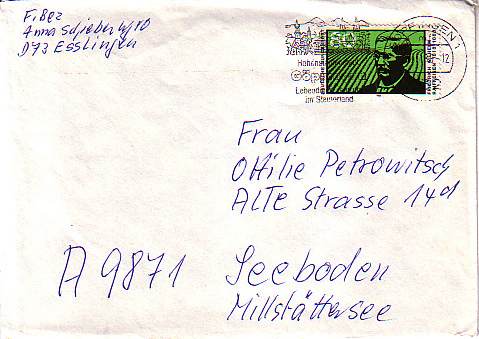 Fißez
Anna Schieber W. 10
D73 Esslingen
Hohens
Göp
Lebendi
im Stauferland
50
12
Frau
Ottilie Petrowitsch
ALTE Strasse 14d
A 9871 Seeboden
Millstättersee